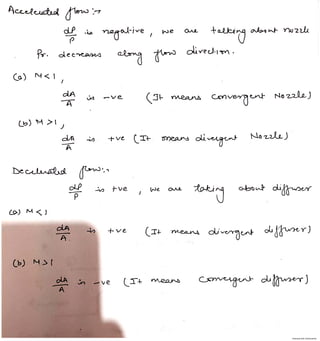 Accelerated flow :→
dP/P is negative, we are talking about nozzle
Pr. decreases along flow direction.
(a) M<1,
dA/A is -ve (It means convergent Nozzle)
(b) M>1,
dA/A is +ve (It means divergent Nozzle)
Decelerated flow:→
dP/P is +ve, we are taking about diffuser
(a) M<1
dA/A is +ve (It means divergent diffuser)
(b) M>1
dA/A is -ve (It means convergent diffuser)